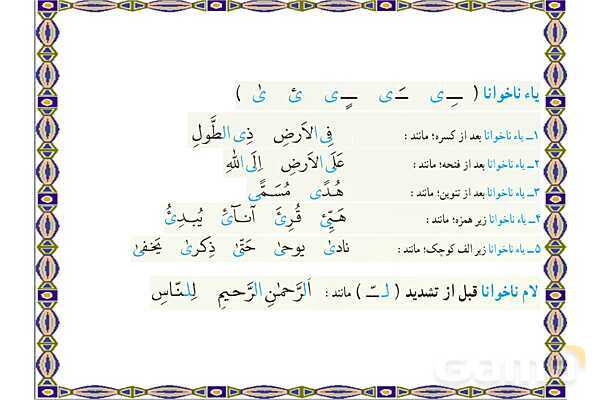 یاء ناخوانا ( ـِـی ـَـی ـٍـی ئ یٰ )
۱ـ یاء ناخوانا بعد از کسره؛ مانند : فِی الاَرضِ ذِی الطَّولِ
۲ـ یاء ناخوانا بعد از فتحه؛ مانند : عَلَی الاَرضِ اِلَی اللّٰهِ
۳ـ یاء ناخوانا بعد از تنوین؛ مانند : هُدًی مُسَمًّی
۴ـ یاء ناخوانا زیر همزه؛ مانند : هَیِّئ قُرِئَ آنـآئَ یُبدِئُ
۵ـ یاء ناخوانا زیر الف کوچک؛ مانند : نادیٰ یوحیٰ حَتّیٰ ذِکریٰ یَخفیٰ
لام ناخوانا قبل از تشدید ( لـّـ ) مانند : اَلرَّحمٰنِ الرَّحیمِ لِلنّاسِ
Gama